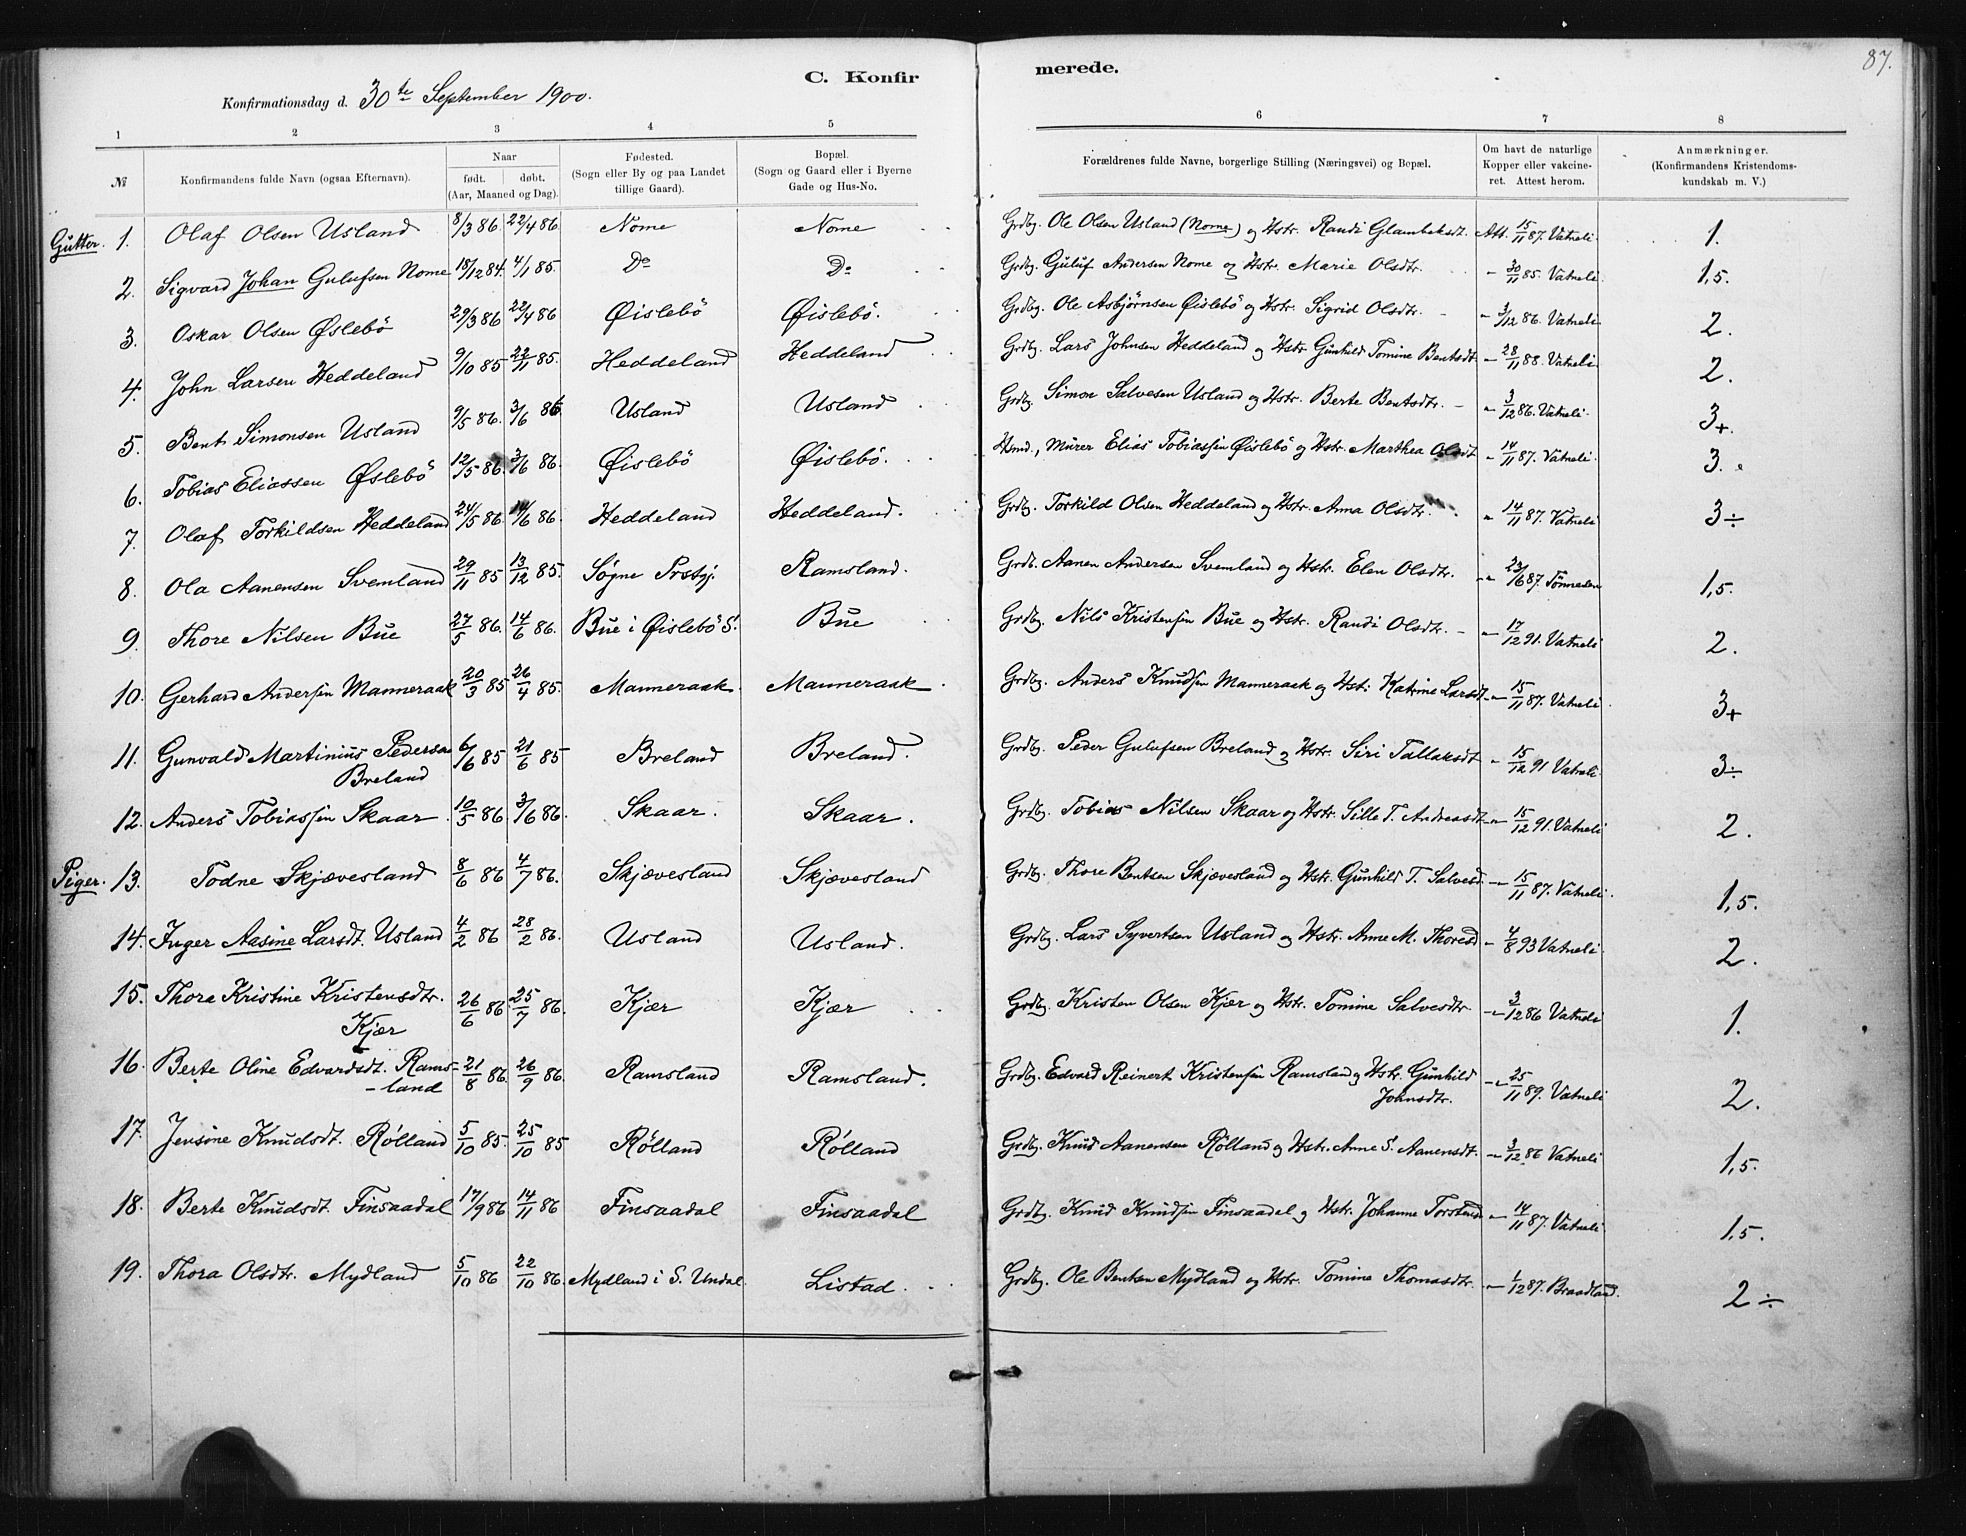 87.
C. Konfirmerede.
Konfirmationsdag d. 30te September 1900.
1 2 3 4 5 6 7 8
№ | Konfirmandens fulde Navn (ogsaa Efternavn). | Naar født. døbt. (Aar, Maaned og Dag). | Fødested. (Sogn eller By og paa Landet tillige Gaard). | Bopæl. (Sogn og Gaard eller i Byerne Gade og Hus-No. | Forældrenes fulde Navne, borgerlige Stilling (Næringsvei) og Bopæl. | Om havt de naturlige Kopper eller vakcineret. Attest herom. | Anmærkninger. (Konfirmandens Kristendomskundskab m. V.)
Gutter. 1. Olaf Olsen Usland 8/3 86. 22/4 86. Nome Nome Grdbg. Ole Olsen Usland (Nome) og Hstr. Randi Glambeksdt. Att. 15/11 87. Vatneli. 1.
2. Sigvard Johan Gulufsen Nome 18/12 84. 4/1 85. Do Do Grdbg. Guluf Andersen Nome og Hstr. Marie Olsdtr. " 30/11 85. Vatneli 1,5.
3. Oskar Olsen Øslebö 29/3 86 22/4 86 Øislebö Øislebö. Grdbg. Ole Asbjørnsen Øislebö og Hstr. Sigrid Olsdtr. " 3/12 86. Vatneli 2.
4. John Larsen Heddeland 9/10 85 22/11 85. Heddeland Heddeland Grdbg. Lars Johnsen Heddeland og Hstr. Gunhild Tomine Bentsdt. " 28/11 88. Vatneli. 2.
5. Bent Simonsen Usland 9/5 86. 3/6 86 Usland Usland Grdbg. Simon Salvesen Usland og Hstr. Berte Bentsdtr. " 3/12 86. Vatneli. 3+.
6. Tobias Eliassen Øslebö 12/5 86. 3/6 86. Øislebö Øislebö. Hmd., Murer Elias Tobiassen Øislebö og Hstr. Marthea Olsdt " 14/11 87. Vatneli. 3.
7. Olaf Torkildsen Heddeland 24/5 86. 14/6 86. Heddeland Heddeland. Grdbg. Torkild Olsen Heddeland og Hstr. Anna Olsdtr. " 14/11 87. Vatneli 3÷
8. Ola Aanensen Svemland 29/11 85 13/12 85. Søgne Prstgj. Ramsland. Grdb. Aanen Andersen Svemland og Hstr. Elen Olsdtr. " 23/6 87. Tönnesen 1,5.
9. Thore Nilsen Bue 27/5 86. 14/6 86. Bue i Øislebö S. Bue Grdbg. Nils Kristensen Bue og Hstr. Randi Olsdtr. " 17/12 91. Vatneli 2.
10. Gerhard Andersen Manneraak 20/3 85 26/4 85. Manneraak. Manneraak. Grdbg. Anders Knudsen Manneraak og Hstr. Katrine Larsdt. " 15/11 87. Vatneli. 3+
11. Gunvald Martinius Pedersen Breland 6/6 85 21/6 85 Breland Breland. Grdbg. Peder Gulufsen Breland og Hstr. Siri Tallaksdt " 15/12 91 Vatneli. 3÷
12. Anders Tobiassen Skaar. 10/5 86. 3/6 86. Skaar. Skaar. Grdbg. Tobias Nilsen Skaar og Hstr. Sille T. Andreasdt " 15/12 91. Vatneli 2.
Piger. 13. Todne Skjævesland 8/6 86 4/7 86. Skjævesland Skjævesland Grdbg. Thore Bentsen Skjævesland og Hstr. Gunhild T. Salvesd. " 15/11 87. Vatneli. 1,5.
14. Inger Aasine Larsdt. Usland 4/2 86 28/2 86. Usland Usland. Grdbg. Lars Syvertsen Usland og Hstr. Anne M. Thoresd " 4/8 93 Vatneli. 2.
15. Thora Kristine Kristensdtr. Kjær 26/6 86. 25/7 86. Kjær Kjær Grdbg. Kristen Olsen Kjær og Hstr. Tomine Salvesdtr. " 3/12 86 Vatneli 1.
16. Berte Oline Edvardsdt. Ramsland 21/8 86. 26/9 86. Ramsland Ramsland. Grdbg. Edvard Reinert Kristensen Ramsland og Hstr. Gunhild Johnsdtr. " 25/11 89. Vatneli 2.
17. Jensine Knudsdt. Rölland 5/10 85. 25/10 85 Rölland Rölland Grdbg. Knud Aanensen Rölland og Hstr. Anne S. Aanensdt. " 3/12 86 Vatneli 1,5.
18. Berte Knudsdt. Finsaadal 17/9 86 14/11 86 Finsaadal Finsaadal Grdbg. Knud Knudsen Finsaadal og Hstr. Johanne Torstensd " 14/11 87. Vatneli 1,5.
19. Thora Olsdtr. Mydland 5/10 86 22/10 86. Mydland i S. Undal. Listad. Grdbg. Ole Bentsen Mydland og Hstr. Tomine Thomasdtr. " 1/12 87. Braadland. 2÷